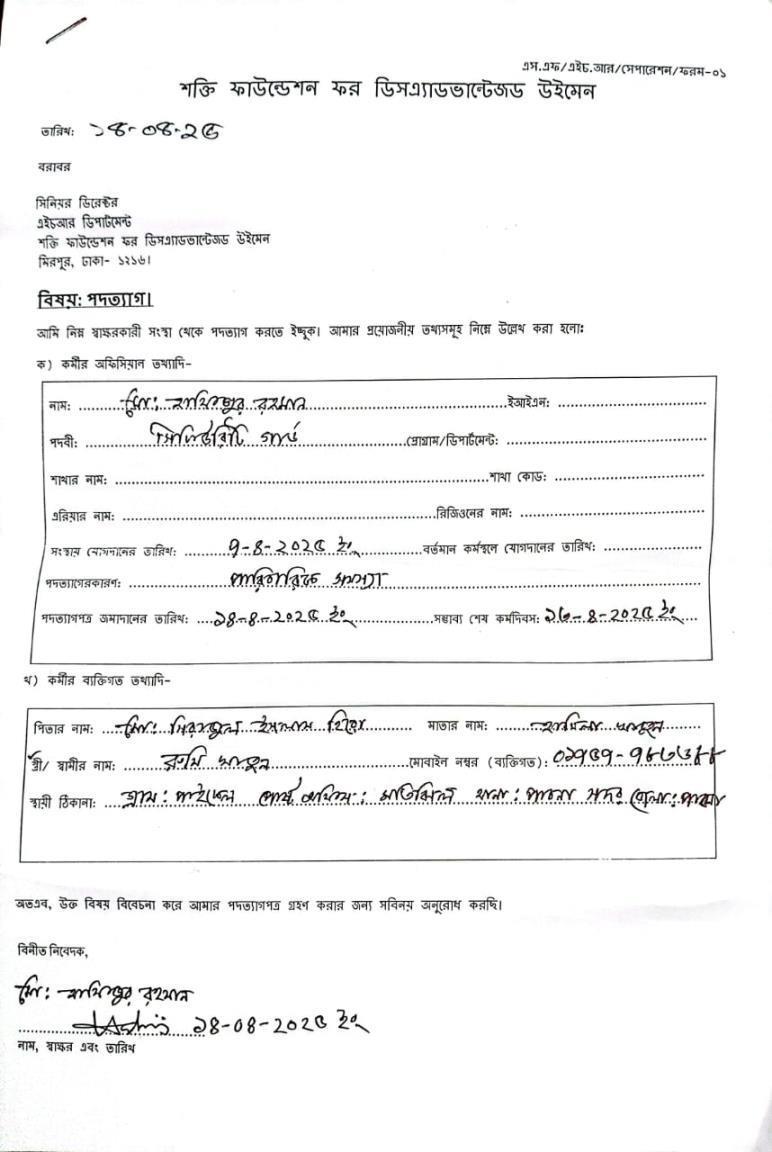 এস.এফ/এইচ.আর/সেপারেশন/ফরম-০১
শক্তি ফাউন্ডেশন ফর ডিসএ্যাডভান্টেজড উইমেন
তারিখ: ১৪-০৪-২৫
বরাবর
সিনিয়র ডিরেক্টর
এইচআর ডিপার্টমেন্ট
শক্তি ফাউন্ডেশন ফর ডিসএ্যাডভান্টেজড উইমেন
মিরপুর, ঢাকা- ১২১৬।
বিষয়: পদত্যাগ।
আমি নিম্ন স্বাক্ষরকারী সংস্থা থেকে পদত্যাগ করতে ইচ্ছুক। আমার প্রয়োজনীয় তথ্যসমূহ নিম্নে উল্লেখ করা হলোঃ
ক) কর্মীর অফিসিয়াল তথ্যাদি-
নাম: মো: রহমান ইআইএন:
পদবী: সিকিউরিটি গার্ড প্রোগ্রাম/ডিপার্টমেন্ট:
শাখার নাম: শাখা কোড:
এরিয়ার নাম: রিজিওনের নাম:
সংস্থায় যোগদানের তারিখ: ৭-৪-২০২৫ ইং বর্তমান কর্মস্থলে যোগদানের তারিখ:
পদত্যাগেরকারণ: পারিবারিক সমস্যা
পদত্যাগপত্র জমাদানের তারিখ: ১৪-৪-২০২৫ ইং সম্ভাব্য শেষ কর্মদিবস: ১৬-৪-২০২৫ ইং
খ) কর্মীর ব্যক্তিগত তথ্যাদি-
পিতার নাম: মো: সিরাজুল ইসলাম মাতার নাম: খাতুন
স্ত্রী/ স্বামীর নাম: রুমি খাতুন মোবাইল নম্বর (ব্যক্তিগত):
স্থায়ী ঠিকানা: গ্রাম: পোস্ট অফিস: থানা: পাবনা সদর জেলা: পাবনা
অতএব, উক্ত বিষয় বিবেচনা করে আমার পদত্যাগপত্র গ্রহণ করার জন্য সবিনয় অনুরোধ করছি।
বিনীত নিবেদক,
মো: রহমান
১৪-০৪-২০২৫ ইং
নাম, স্বাক্ষর এবং তারিখ